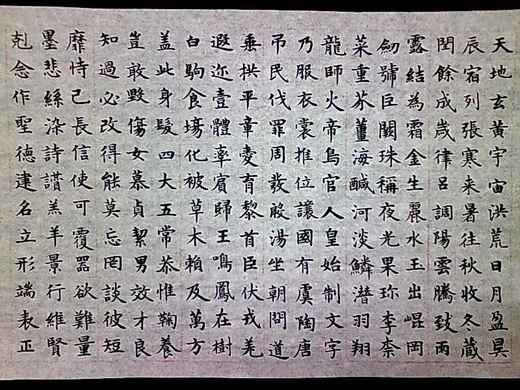 天地玄黃宇宙洪荒日月盈昃
辰宿列張寒来暑往秋收冬藏
閏餘成歲律呂調陽雲騰致雨
露結為霜金生麗水玉出崐岡
劒號巨闕珠稱夜光果珎李柰
菜重芥薑海鹹河淡鱗潛羽翔
龍師火帝鳥官人皇始制文字
乃服衣裳推位讓國有虞陶唐
吊民伐罪周發殷湯坐朝問道
垂拱平章愛育黎首臣伏戎羌
遐迩壹體率賓歸王鳴鳳在樹
白駒食場化被草木賴及萬方
盖此身髮四大五常恭惟鞠養
豈敢毀傷女慕貞絜男效才良
知過必改得能莫忘罔談彼短
靡恃己長信使可覆器欲難量
墨悲絲染詩讚羔羊景行維賢
剋念作聖德建名立形端表正